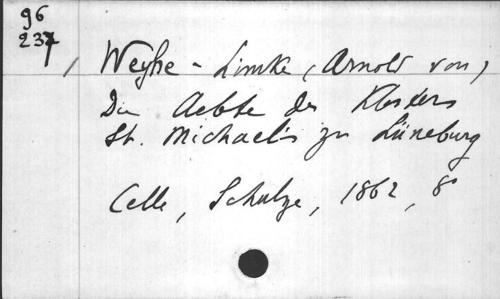 96
237
Weyhe-Eimke (Arnold von)
Die Aebte des Klosters
St. Michaelis zu Lüneburg
Celle, Schulze, 1862, 8°